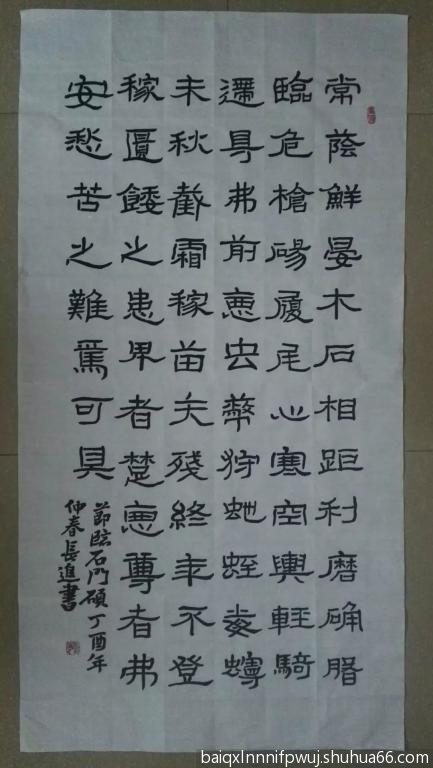 常蔭鮮晏木石相距利磨确
臨危槍碭履尾心寒空輿輕騎
遰㝵弗前惡虫幣狩虵蛭毒蟃
未秋截霜稼苗夭殘終年不登
稼匱餧之患卑者楚惡尊者弗
安愁苦之難焉可具
節臨石門頌丁酉年
仲春長進書
baiqxlnnnifpwuj.shuhua66.com